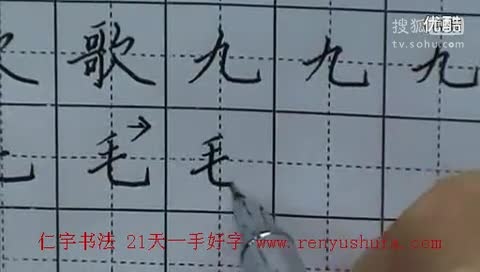 搜狐视频 优酷
tv.sohu.com
欠 歌 九 九 九
毛 毛 毛
仁宇书法 21天一手好字 www.renyushufa.com